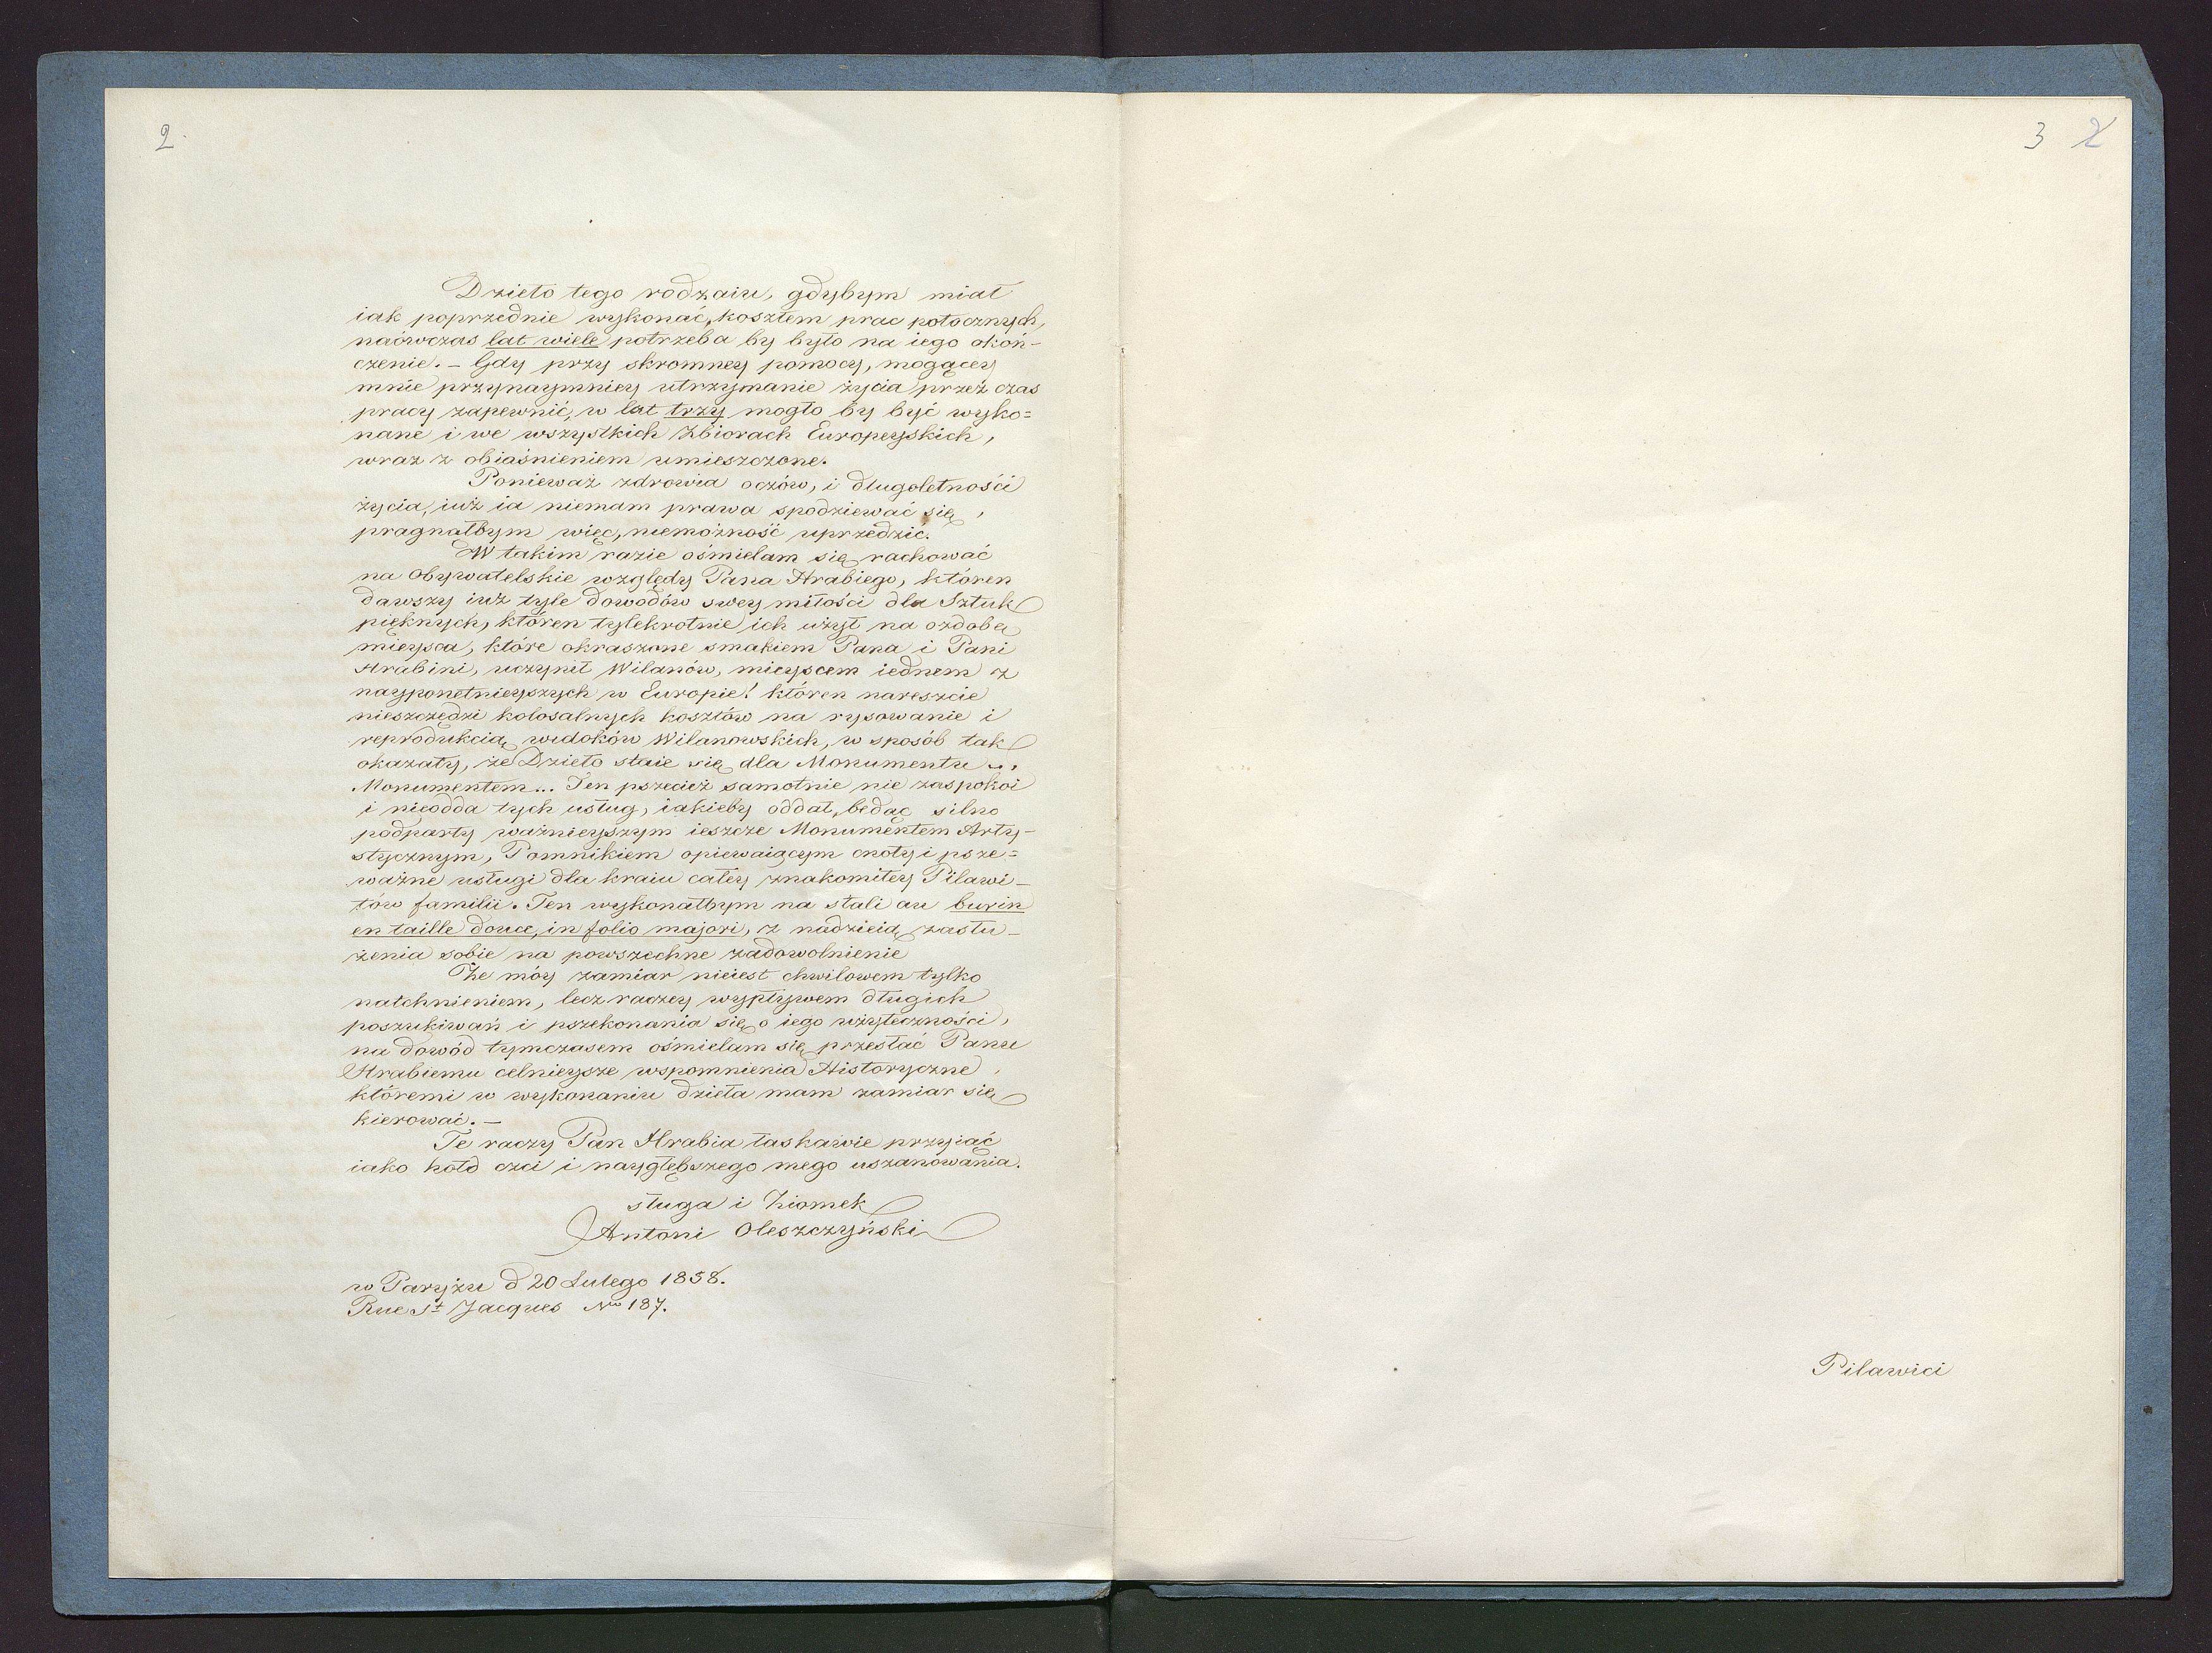 2.
Dzieło tego rodzaiu, gdybym miał
iak poprzednie wykonać, kosztem prac potocznych,
naówczas lat wiele potrzeba by było na iego okoń-
czenie. – Gdy przy skromney pomocy, mogącey
mnie przynaymniey utrzymanie życia przez czas
pracy zapewnić, w lat trzy mogło by być wyko=
nane i we wszystkich Zbiorach Europeyskich,
wraz z obiaśnieniem umieszczone.
Ponieważ zdrowia oczów, i długoletności
życia, iuż ia niemam prawa spodziewać się,
pragnałbym więc, niemożność uprzedzić.
W takim razie ośmielam się rachować
na obywatelskie względy Pana Hrabiego, któren
dawszy iuż tyle dowodów swey miłości dla Sztuk
pięknych, któren tylekrotnie ich użył na ozdobę
mieysca, które okraszone smakiem Pana i Pani
Hrabini, uczynił Wilanów, mieyscem iednem z
nayponetnieyszych w Europie! któren nareszcie
nieszczędzi kolosalnych kosztów na rysowanie i
reprodukcią widoków Wilanowskich, w sposób tak
okazały, że Dzieło staie się dla Monumentu ...
Monumentem... Ten pszecież samotnie nie zaspokoi
i nieodda tych usług, iakieby oddał, będąc silno
podparty ważnieyszym ieszcze Monumentem Arty-
stycznym, Pomnikiem opiewaiącym cnoty i psze=
ważne usługi dla kraiu całey znakomitey Pilawi-
tów familii. Ten wykonałbym na stali au burin
en taille douce, in folio majori, z nadzieią zasłu-
żenia sobie na powszechne zadowolnienie
Że móy zamiar nieiest chwilowem tylko
natchnieniem, lecz raczey wypływem długich
poszukiwań i pszekonania się o iego użyteczności,
na dowód tymczasem ośmielam się przesłać Panu
Hrabiemu celnieysze wspomnienia Historyczne,
któremi w wykonaniu dzieła mam zamiar się
kierować. –
Te raczy Pan Hrabia łaskawie przyiąć
iako hołd czci i naygłębszego mego uszanowania.
sługa i Ziomek
Antoni Oleszczyński
w Paryżu d 20 Lutego 1858.
Rue St Jacques No 187.
3 2
Pilawici